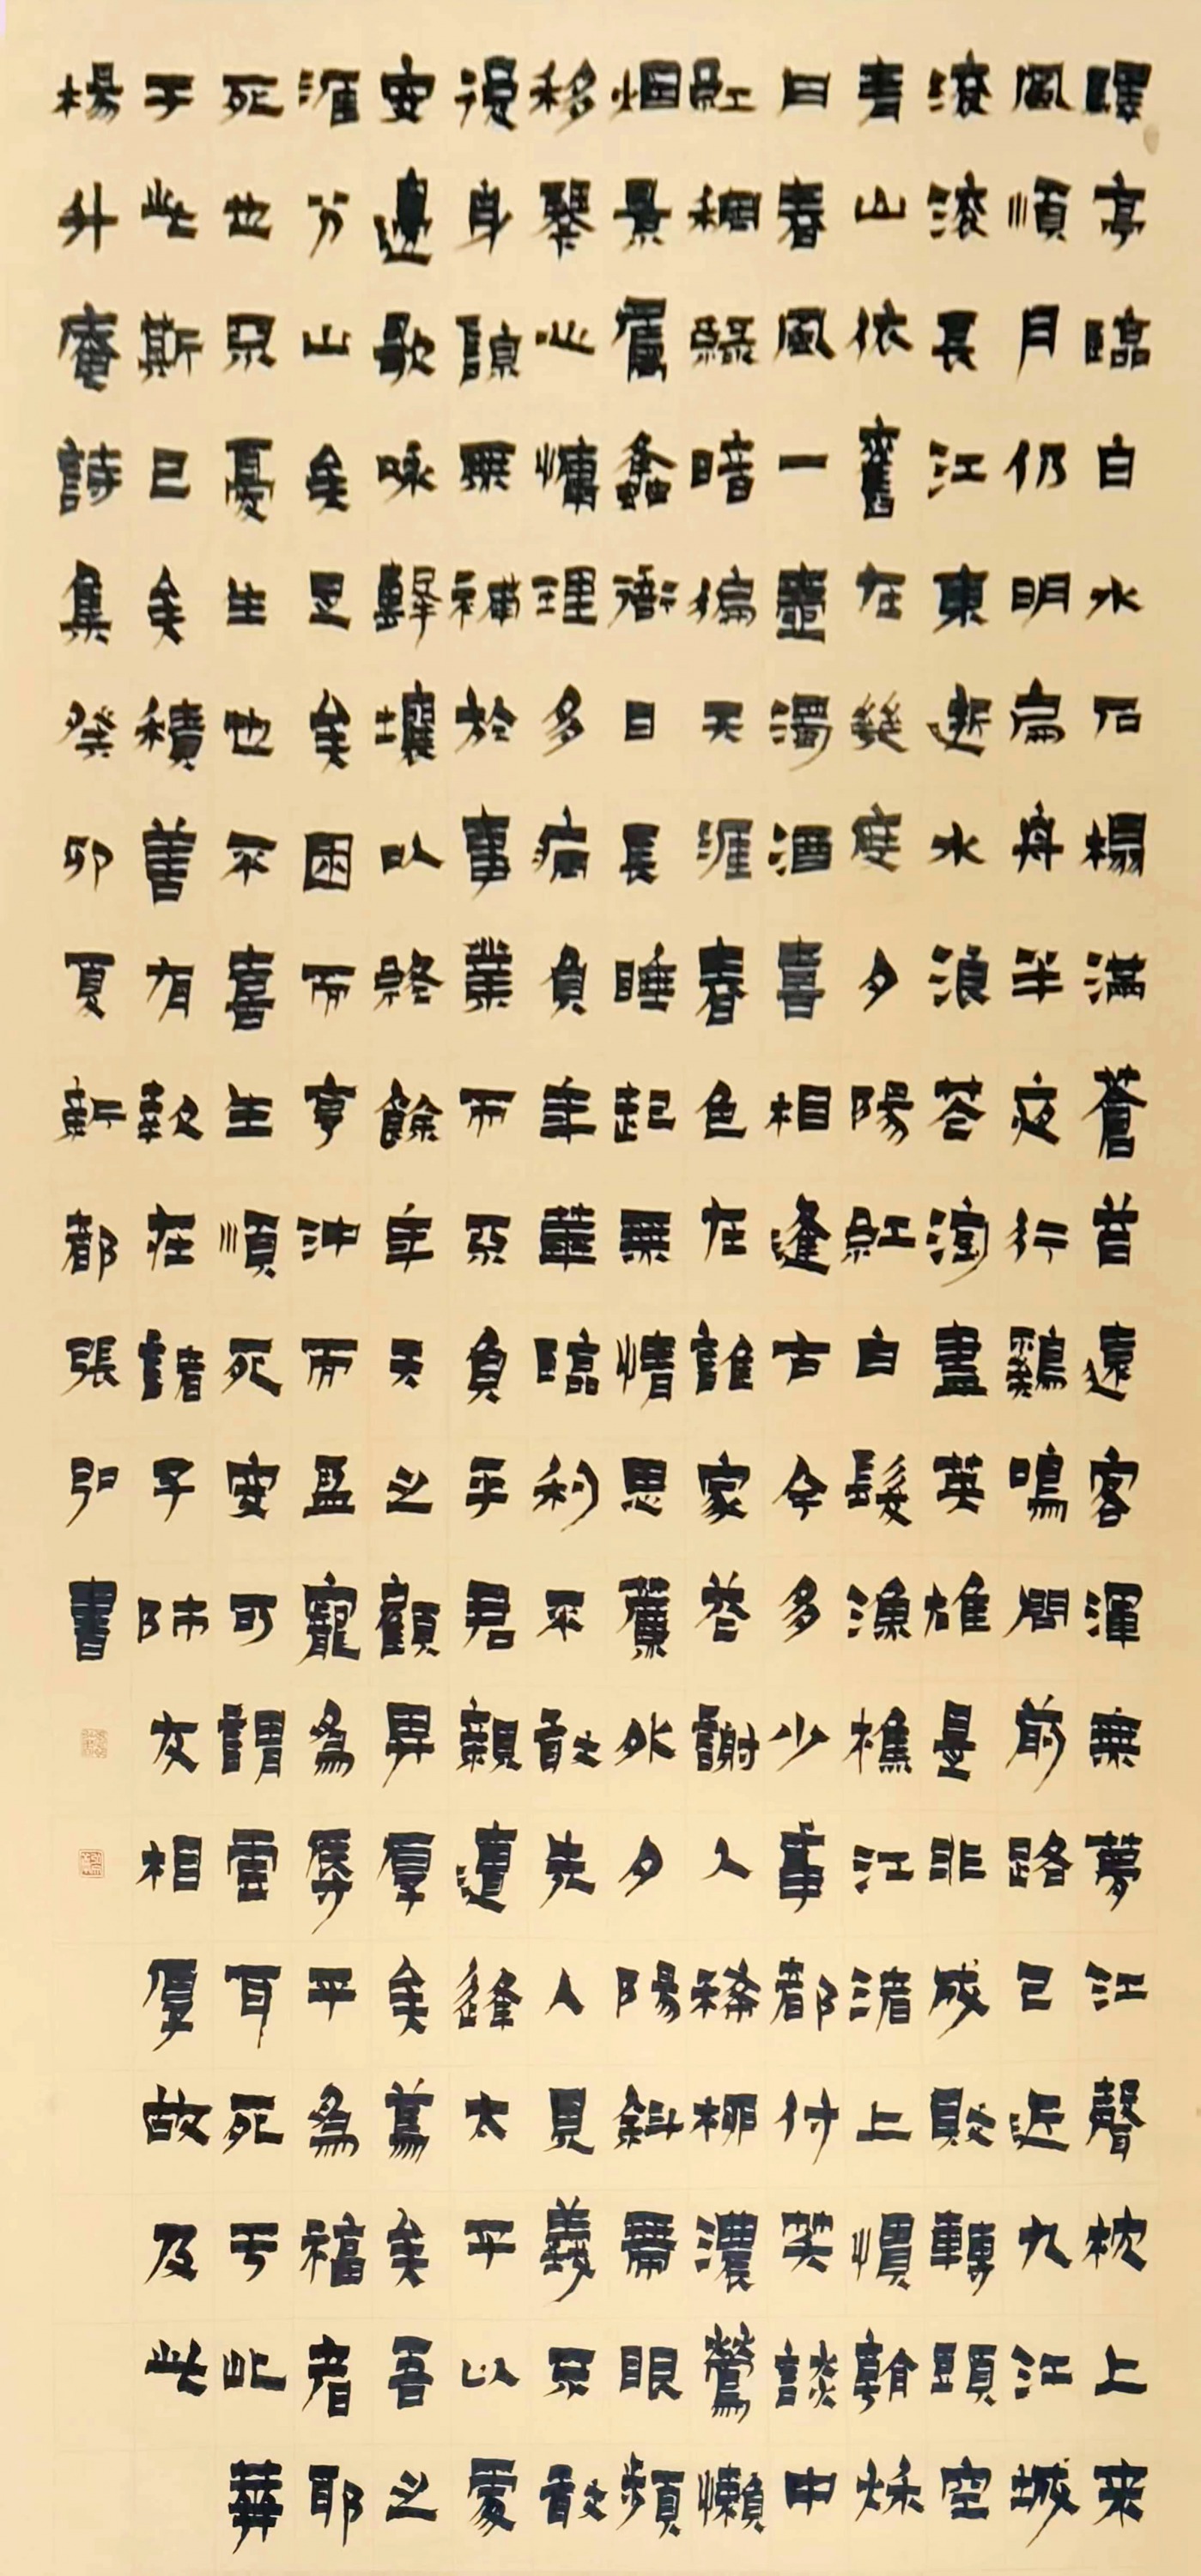 驛亭臨白水石榻滿蒼苔遠客渾無夢江聲枕上来
風順月仍明扁舟半夜行鷄鳴問前路已近九江城
滾滾長江東逝水浪花淘盡英雄是非成敗轉頭空
青山依舊在幾度夕陽紅白髮漁樵江渚上慣看秋
月春風一壺濁酒喜相逢古今多少事都付笑談中
紅稠綠暗徧天涯春色在誰家花謝人稀柳濃鶯懶
烟景屬蠭衙日長睡起無情思簾外夕陽斜帶眼頻
移琴心慵理多病負年華臨利不敢先人見義亦敢
後身諒無補於事業而亦負乎君親遭逢太平以處
安邊歌咏擊壤以終餘年天之顧畀厚矣篤矣吾之
涯分山矣足矣困而亨沖而盈寵為辱平為福者耶
死也亦憂生也不喜生順死安可謂雲耳死于此葬
于此斯已矣積善有欵在諸子師友相厚故及此
楊升庵詩集癸卯夏新都張書